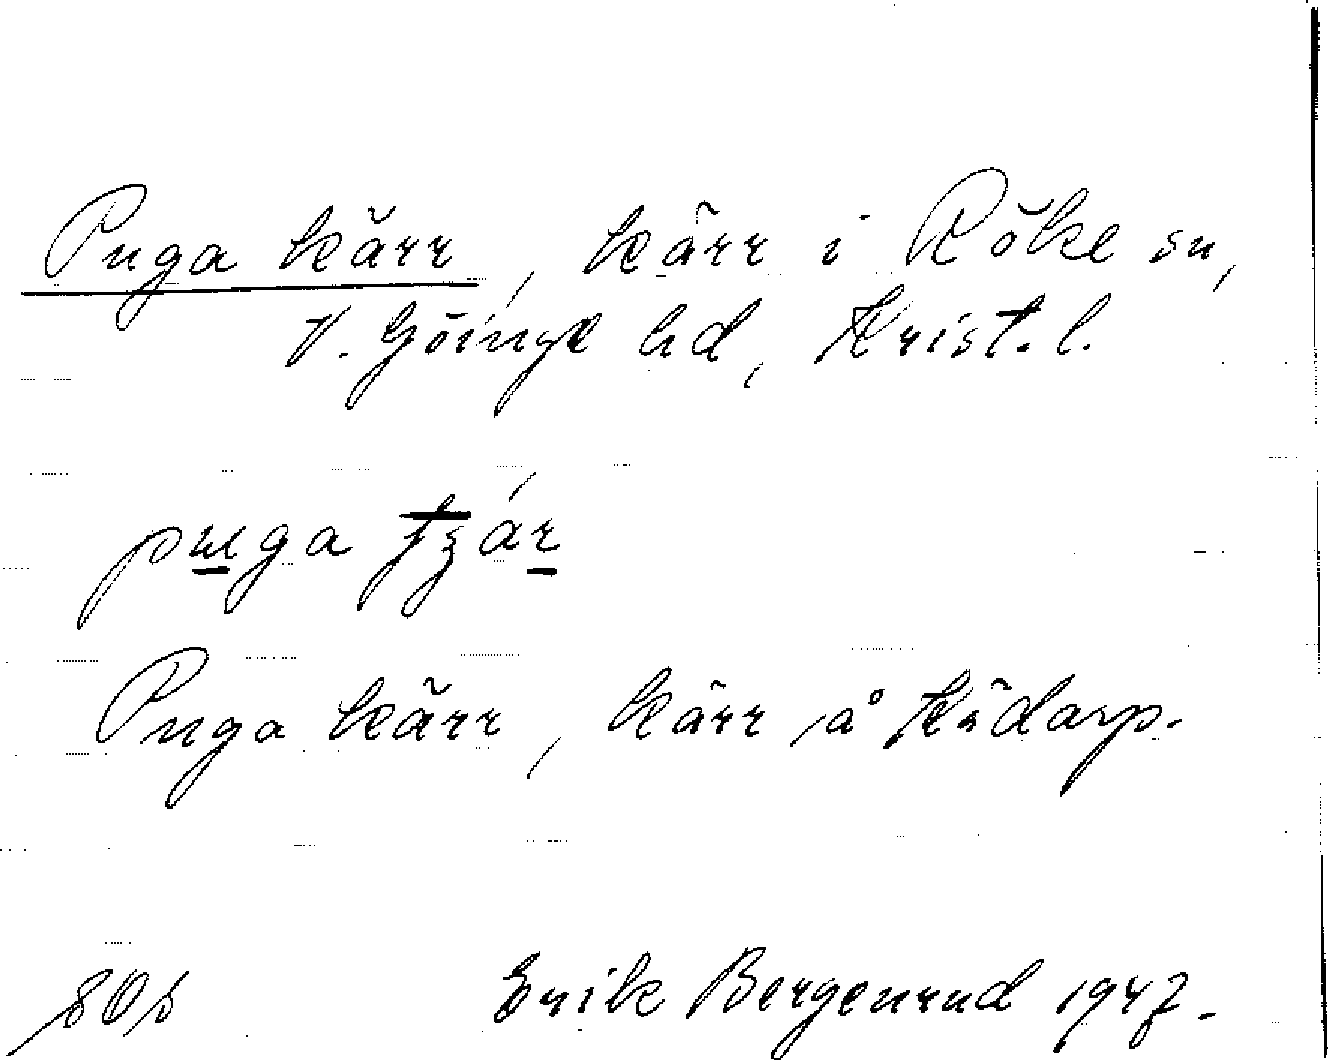 Puga kärr, kärr i Röke sn,
V. Göinge hd, Krist. l.
puga tʒár
Puga kärr, kärr å Kädarp.
Erik Bergenrud 1947.